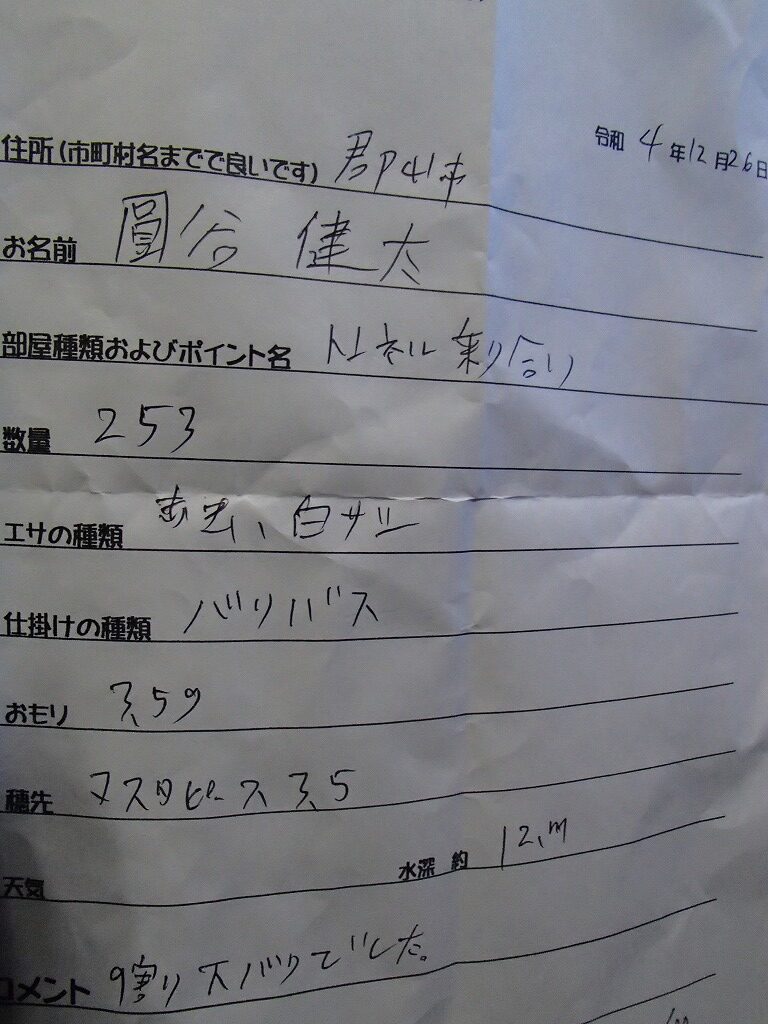 令和 4年12月26日
住所(市町村名までで良いです) 郡山市
お名前 圓谷 健太
部屋種類およびポイント名 トンネル 乗り合り
数量 253
エサの種類 赤虫、白サシ
仕掛けの種類 バリバス
おもり 3.5g
穂先 マスタピース 3.5
天気 水深 約 12.m
コメント 9割り下バリでした。